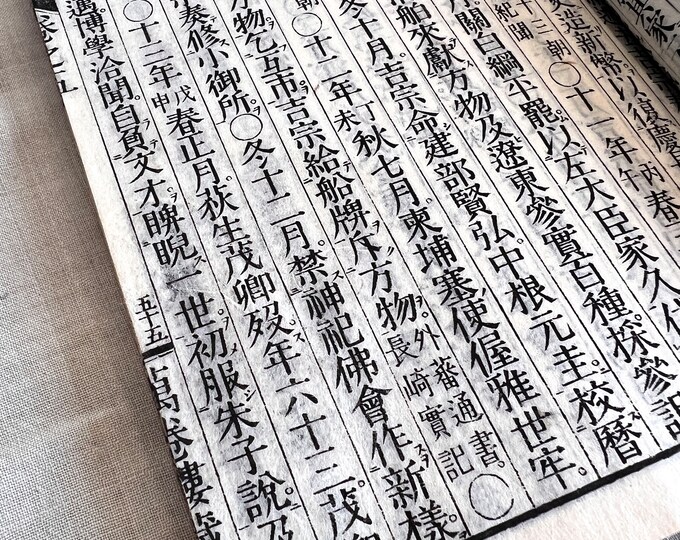 造新幣以復慶
紀聞十三朝〇十一年丙午春三
月關白綱平罷以左大臣家久代
舶來獻方物及遼東參實百種採參
冬十月吉宗命建部賢弘中根元圭校暦
朝〇十二年丁未秋七月柬埔塞使偓雅世牢
方物乞互市吉宗給船牌斥方物外蕃通書長崎實記〇
奏修小御所〇冬十二月禁神祀佛會作新樣
〇十三年戊申春正月荻生茂卿歿年六十三茂
邁博學洽聞自負文才睥睨一世初服朱子說及
卷之五 五十五 萬卷樓藏